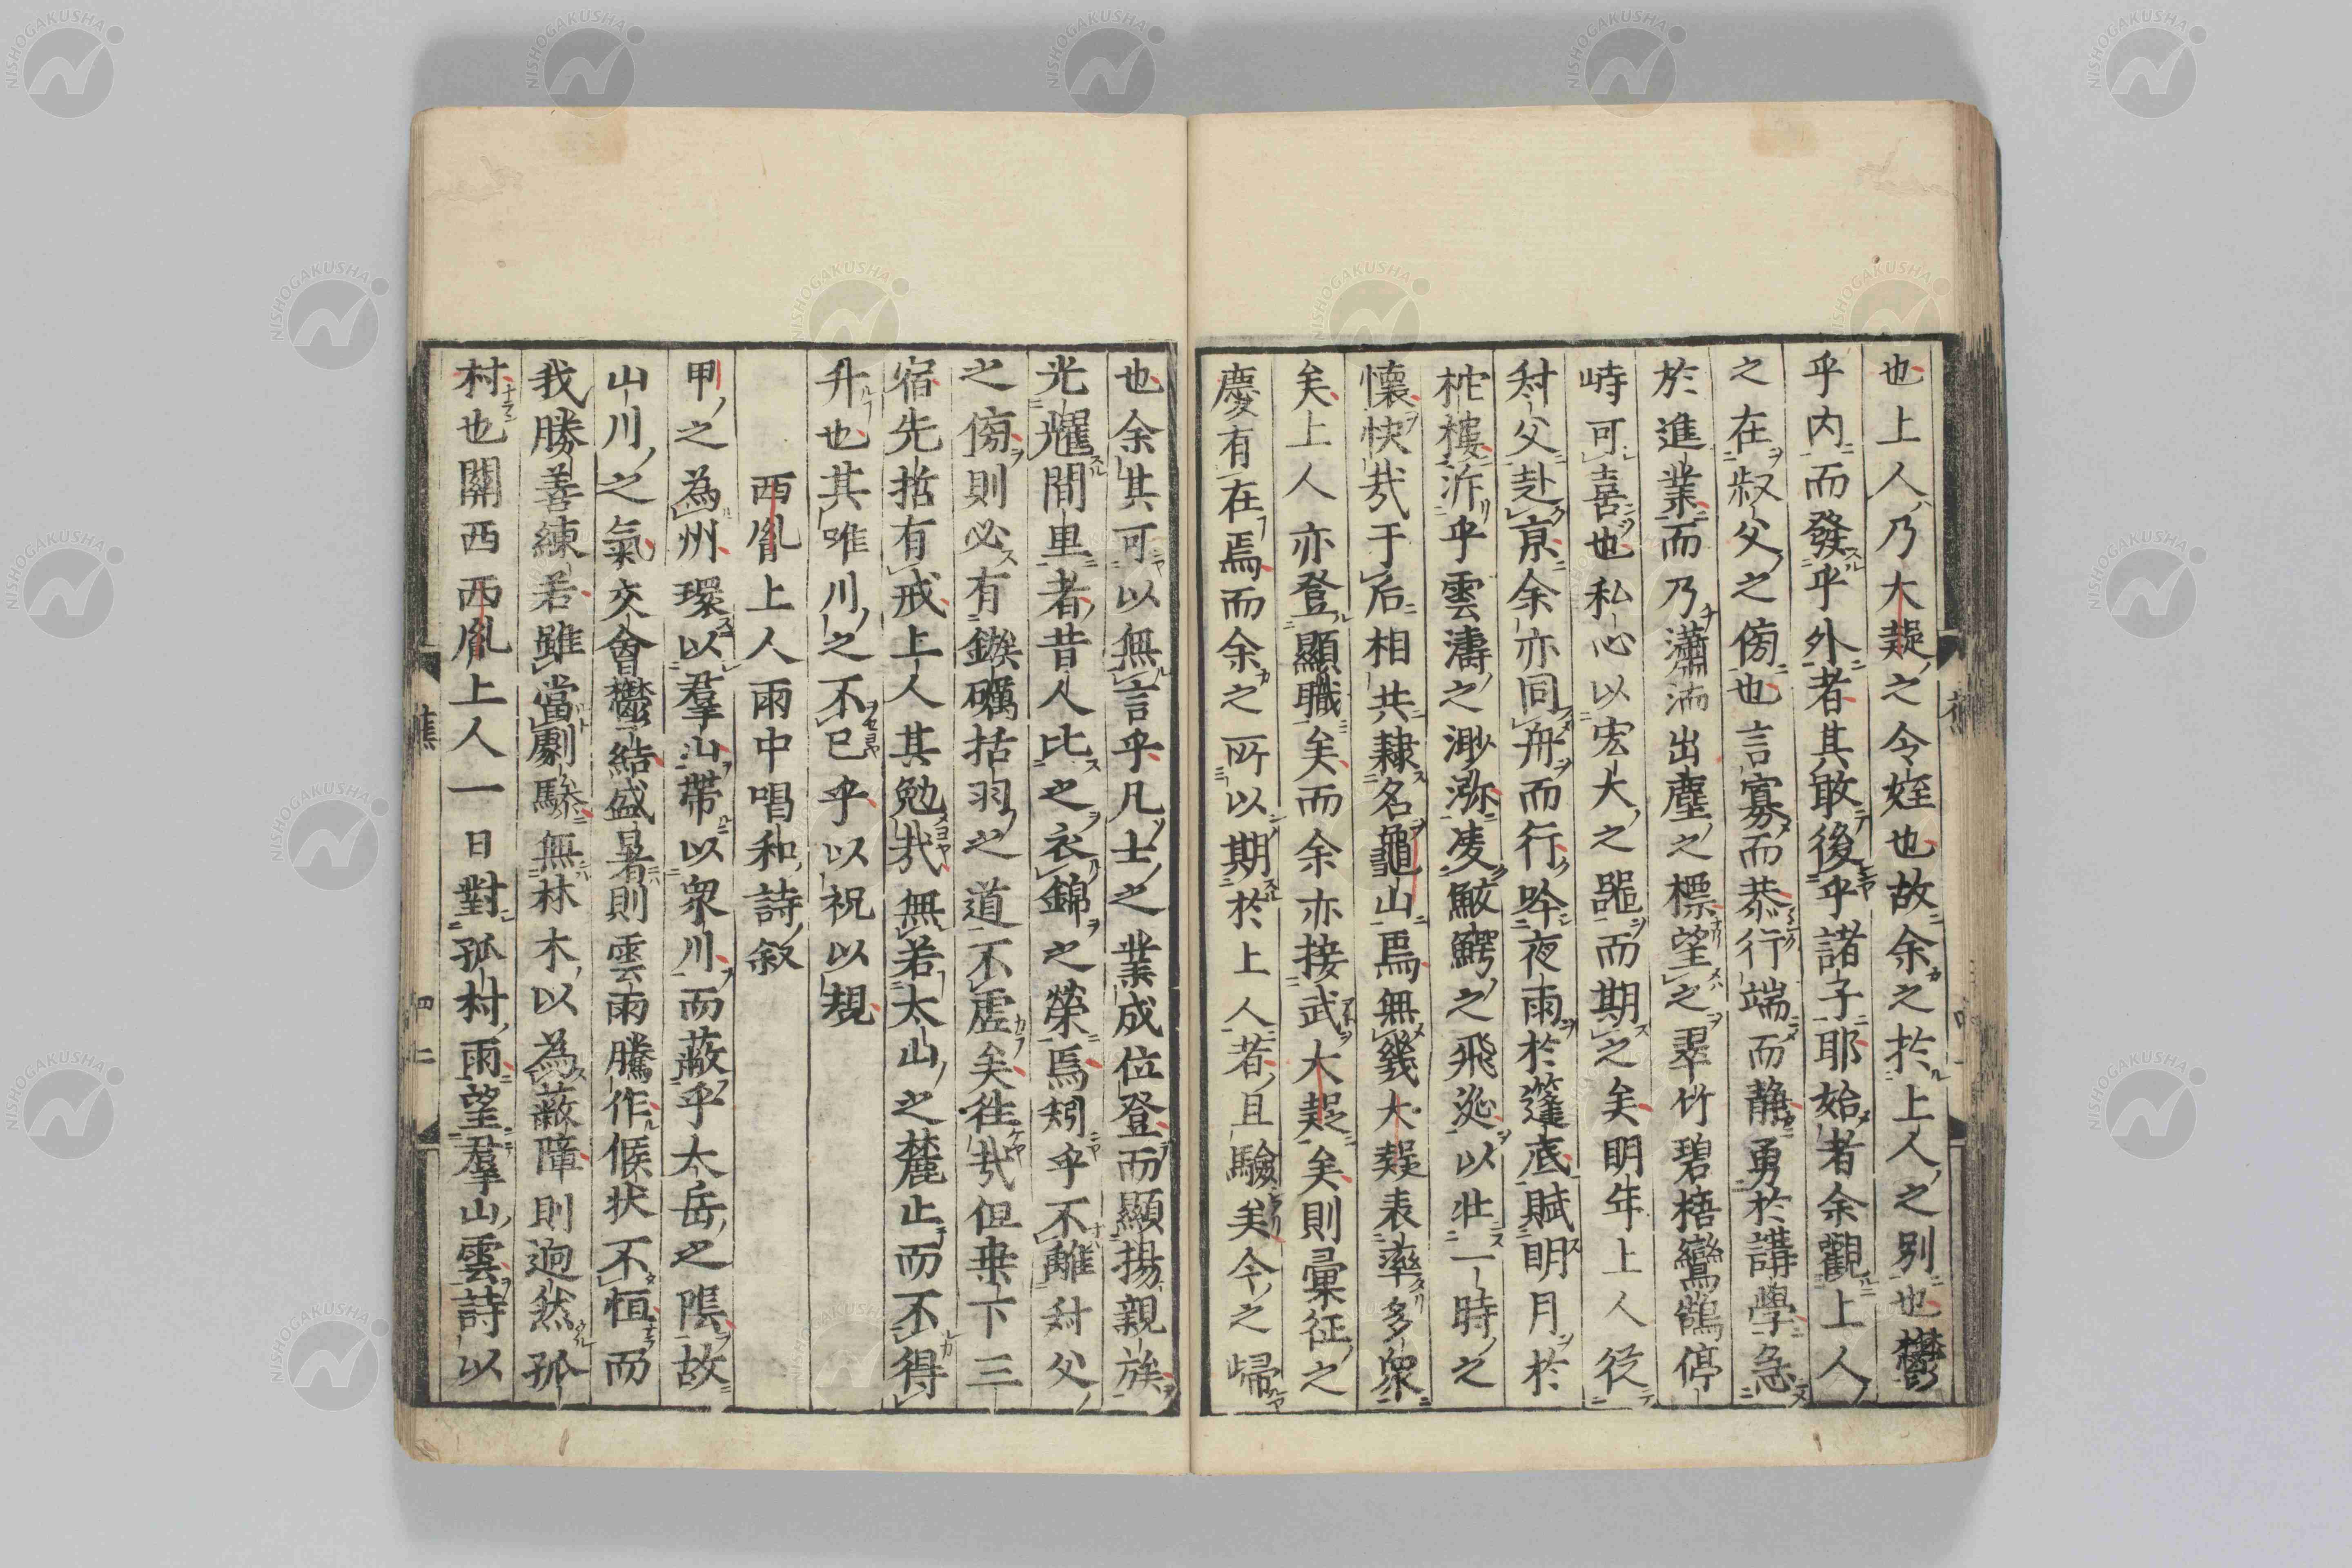 也上人乃大趗之令姪也故余之於上人之別也鬱
乎内而發乎外者其敢後乎諸子耶始者余觀上人
之在叔父之傍也言寡而恭行端而静勇於講學急
於進業而乃瀟洒出塵之標望之翠竹碧梧鸞鵠停
峙可喜也私心以宏大之器而期之矣明年上人従
叔父赴京余亦同舟而行吟夜雨於篷底賦明月於
柁樓泝乎雲濤之渺瀰凌鮫鰐之飛涎以壮一時之
懷快哉于后相共隷名龜山焉無幾大趗表率多衆
矣上人亦登顯職矣而余亦接武大趗矣則彙征之
慶有在焉而余之所以期於上人者且驗矣今之帰
也余其可以無言乎凡士之業成位登而顯揚親族
光耀閭里者昔人比之衣錦之榮焉矧乎不離叔父
之傍則必有鏃礪括羽之道不虚矣徃哉但垂下三
宿先哲有戒上人其勉哉無若太山之麓止而不得
升也其唯川之不已乎以祝以規
西胤上人雨中唱和詩叙
甲之為州環以羣山帶以衆川而蔽乎太岳之陰故
山川之氣交會欝結盛暑則雲雨騰作候状不恒而
我勝善練若雖當劇驂無林木以為蔽障則逈然孤
村也關西西胤上人一日對孤村雨望羣山雲詩以
蕉
四上
NISHOGAKUSHA